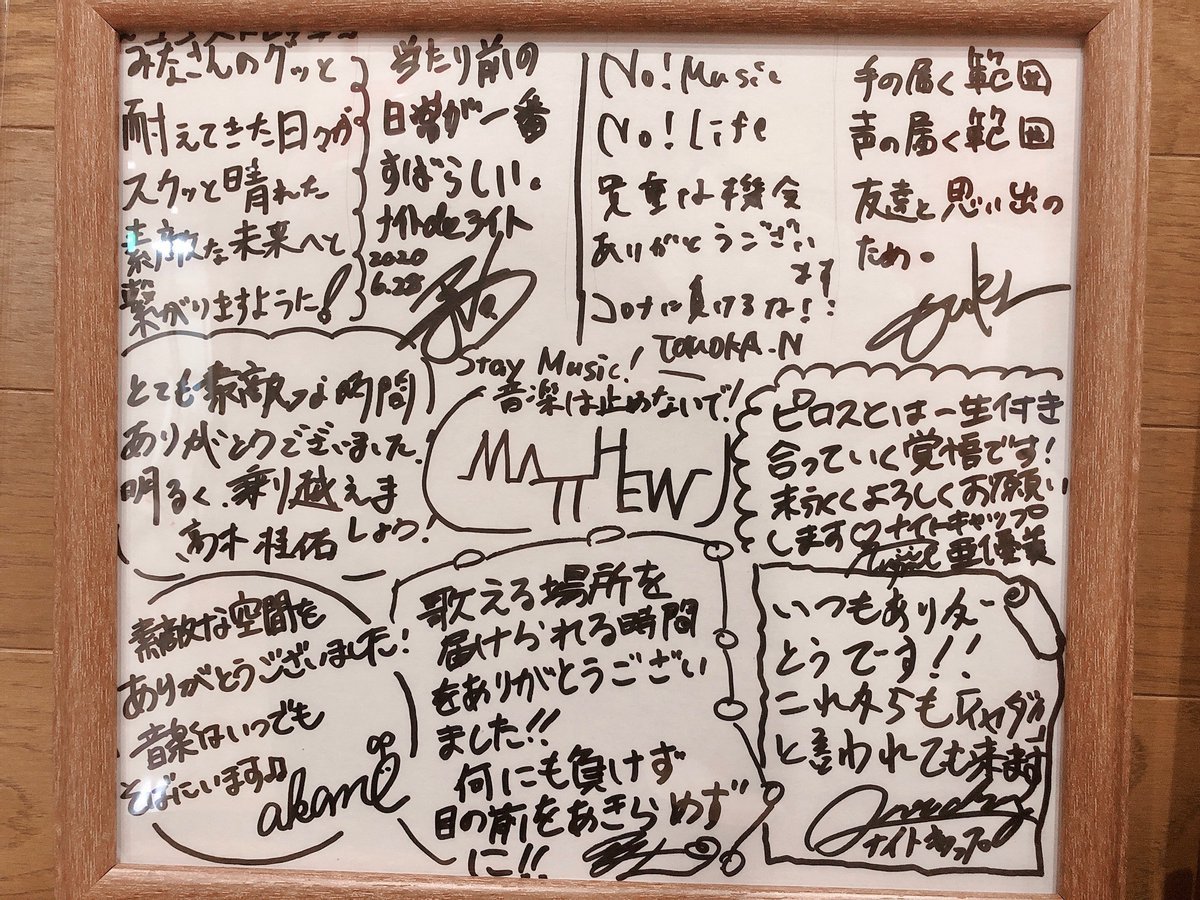 みなさんのグッと
耐えてきた日々が
スクッと晴れた
素敵な未来へと
繋がりますように!
当たり前の
日常が一番
すばらしい。
ナイトdeライト
2020
6.28
No! Music
No! Life
貴重な機会
ありがとうござい
ます!
コロナに負けるな!
TOMOKA.N
手の届く範囲
声の届く範囲
友達と思い出の
ため。
とても素敵な時間
ありがとうございました!
明るく、乗り越えま
しょう!
高木桂佑
Stay Music!
音楽は止めないで!
MATTHEW J
ピロスとは一生付き
合っていく覚悟です!
末永くよろしくお願い
します♡ナイトキャップ
亜優美
素敵な空間を
ありがとうございました!
音楽はいつでも
そばにいます♫
akane
歌える場所を
届けられる時間
をありがとうござい
ました!!
何にも負けず
目の前をあきらめず
に!!
いつもありがー
とうでーす!!
これからも「ヤダ」
と言われても来ます
ナイトキャップ